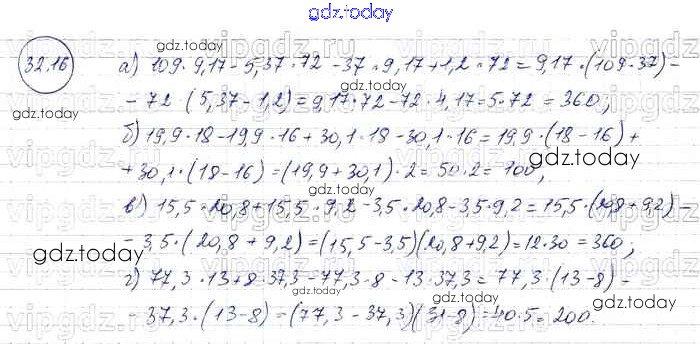 gdz.today
32.16
а) 109·9,17-5,37·72-37·9,17+1,2·72=9,17·(109-37)-
-72(5,37-1,2)=9,17·72-72·4,17=5·72=360;
б) 19,9·18-19,9·16+30,1·18-30,1·16=19,9·(18-16)+
+30,1·(18-16)=(19,9+30,1)·2=50·2=100;
в) 15,5·20,8+15,5·9,2-3,5·20,8-3,5·9,2=15,5·(20,8+9,2)-
-3,5·(20,8+9,2)=(15,5-3,5)(20,8+9,2)=12·30=360;
г) 77,3·13+8·37,3-77,3·8-13·37,3=77,3·(13-8)-
-37,3·(13-8)=(77,3-37,3)(31-8)=40·5=200.
gdz.today
gdz.today
gdz.today
gdz.today
gdz.today
gdz.today
gdz.today
vipgdz.ru
vipgdz.ru
vipgdz.ru